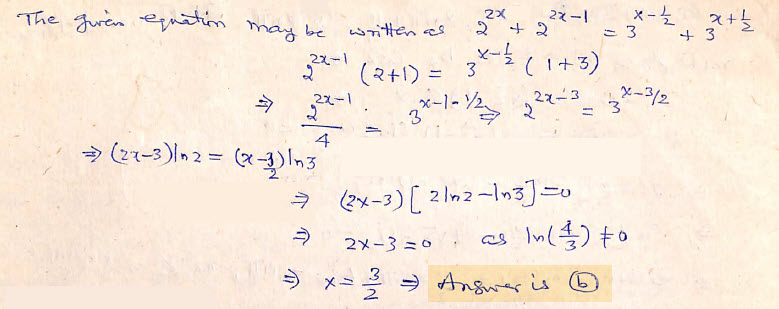 The given equation may be written as 2^{2x} + 2^{2x-1} = 3^{x-1/2} + 3^{x+1/2}
2^{2x-1} (2+1) = 3^{x-1/2} (1+3)
⇒ 2^{2x-1}/4 = 3^{x-1-1/2} ⇒ 2^{2x-3} = 3^{x-3/2}
⇒ (2x-3)ln2 = (x-3/2)ln3
⇒ (2x-3)[2ln2-ln3]=0
⇒ 2x-3=0 . as ln(4/3) ≠ 0
⇒ x = 3/2 ⇒ Answer is ⓑ